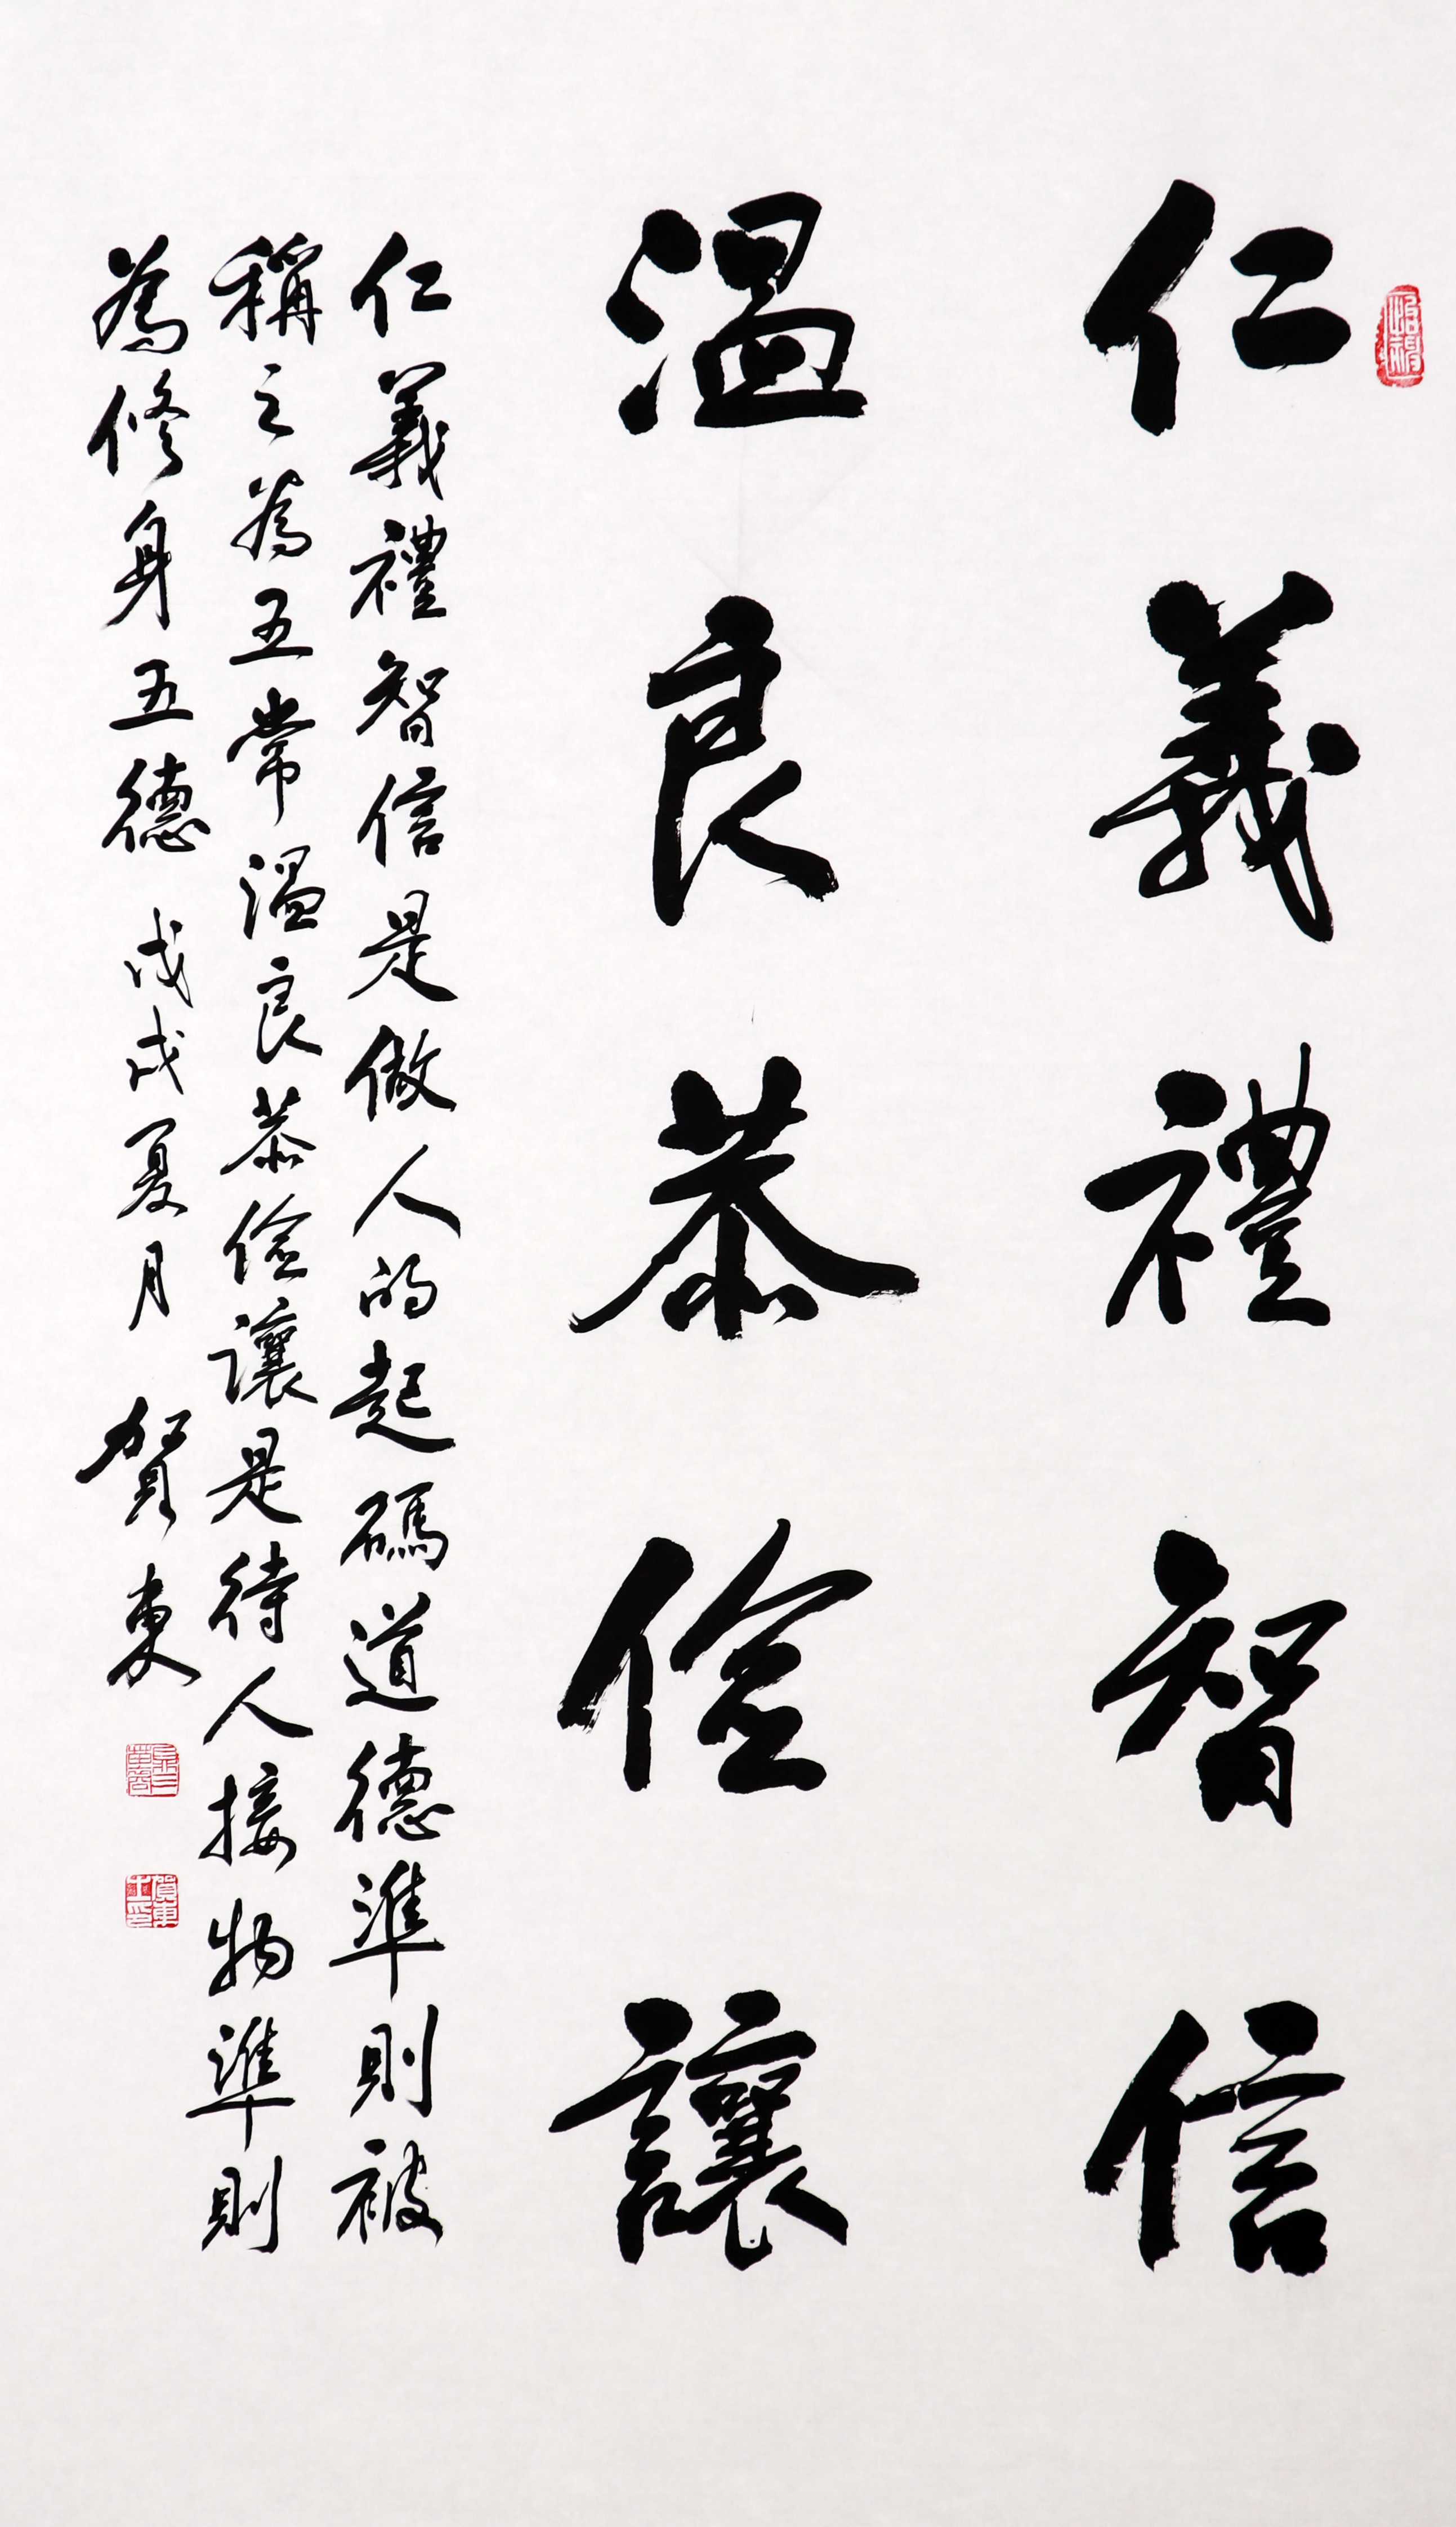 仁義禮智信
溫良恭儉讓
仁義禮智信是做人的起碼道德準則被
稱之為五常溫良恭儉讓是待人接物準則
為修身五德 戊戌夏月 賀東